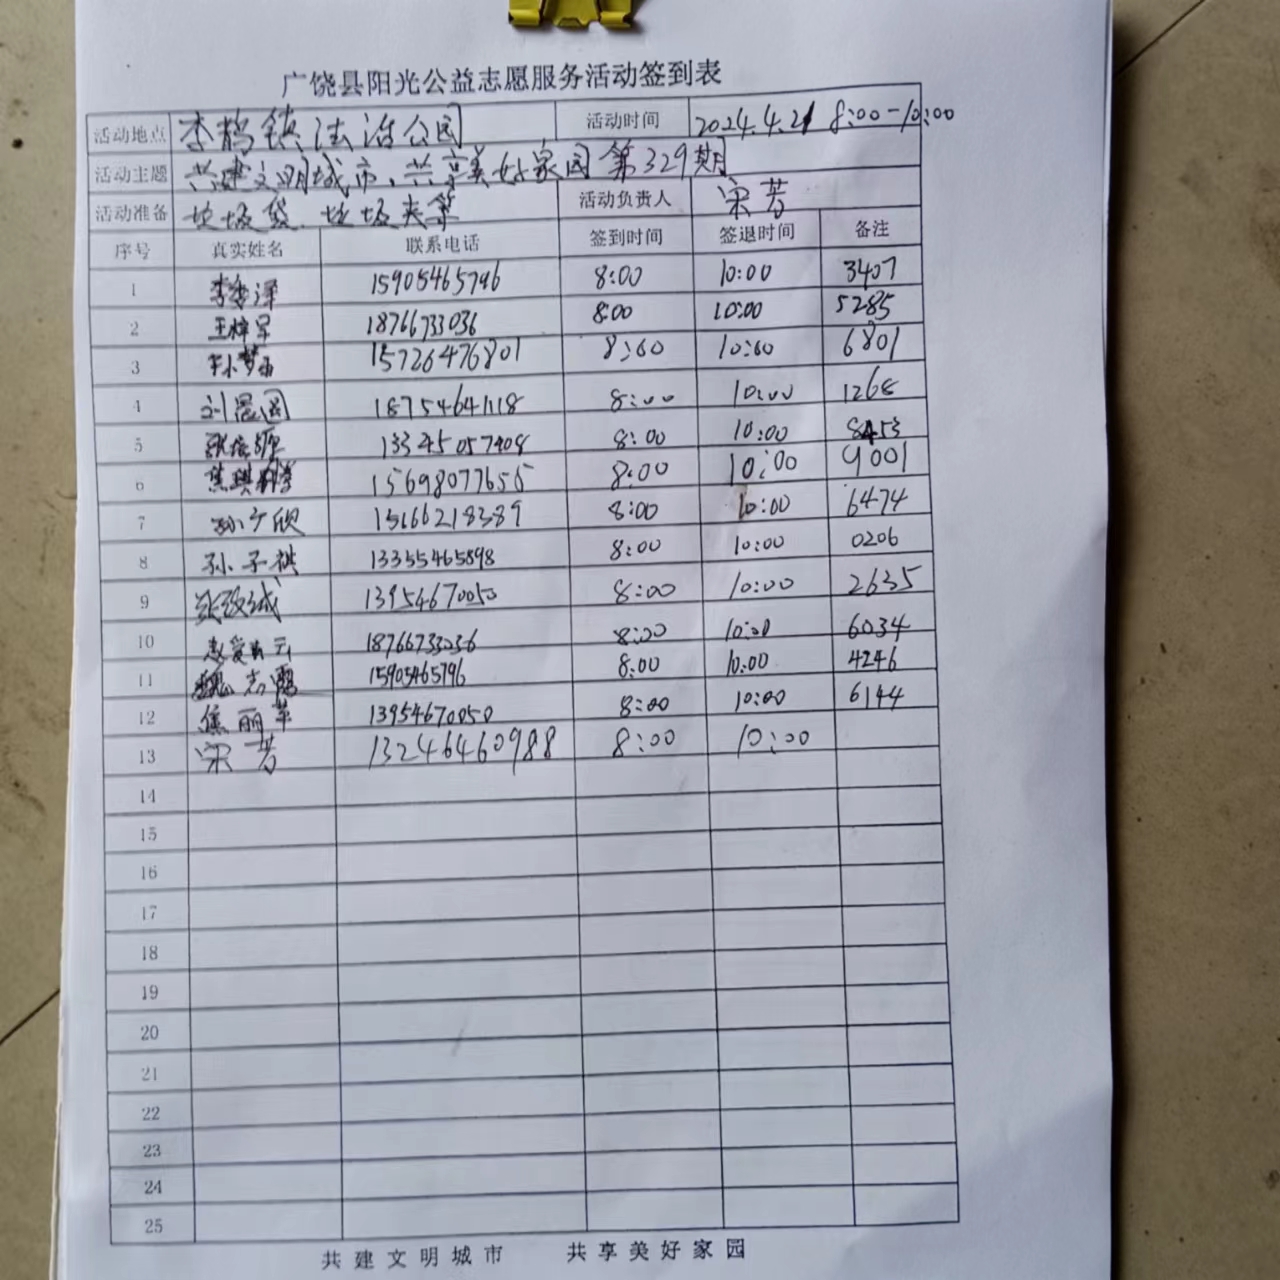 广饶县阳光公益志愿服务活动签到表
活动地点 李鹊镇法治公园 活动时间 2024.4.21 8:00-10:00
活动主题 共建文明城市、共享美好家园第329期
活动准备 垃圾袋、垃圾夹等 活动负责人 宋芳
序号 真实姓名 联系电话 签到时间 签退时间 备注
1 15905465796 8:00 10:00 3407
2 王梓呈 18766733036 8:00 10:00 5285
3 15726476801 8:00 10:00 6801
4 刘恩图 18754641118 8:00 10:00 1268
5 13345057408 8:00 10:00 8453
6 15698077655 8:00 10:00 9001
7 孙广欣 15166218389 8:00 10:00 6474
8 孙子祺 13355465898 8:00 10:00 0206
9 张致诚 13954670050 8:00 10:00 2635
10 18766733036 8:00 10:00 6034
11 魏志霞 15905465796 8:00 10:00 4246
12 焦丽苹 13954670050 8:00 10:00 6144
13 宋芳 13246460988 8:00 10:00
14
15
16
17
18
19
20
21
22
23
24
25
共建文明城市 共享美好家园